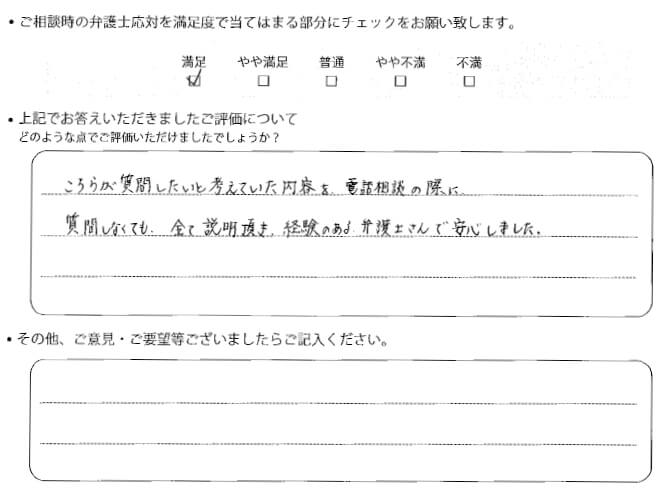 ・ご相談時の弁護士応対を満足度で当てはまる部分にチェックをお願い致します。
満足 やや満足 普通 やや不満 不満
☑ □ □ □ □
・上記でお答えいただきましたご評価について
どのような点でご評価いただけましたでしょうか？
こちらが質問したいと考えていた内容を、電話相談の際に、
質問しなくても、全て説明頂き、経験のある弁護士さんで安心しました。
・その他、ご意見・ご要望等ございましたらご記入ください。